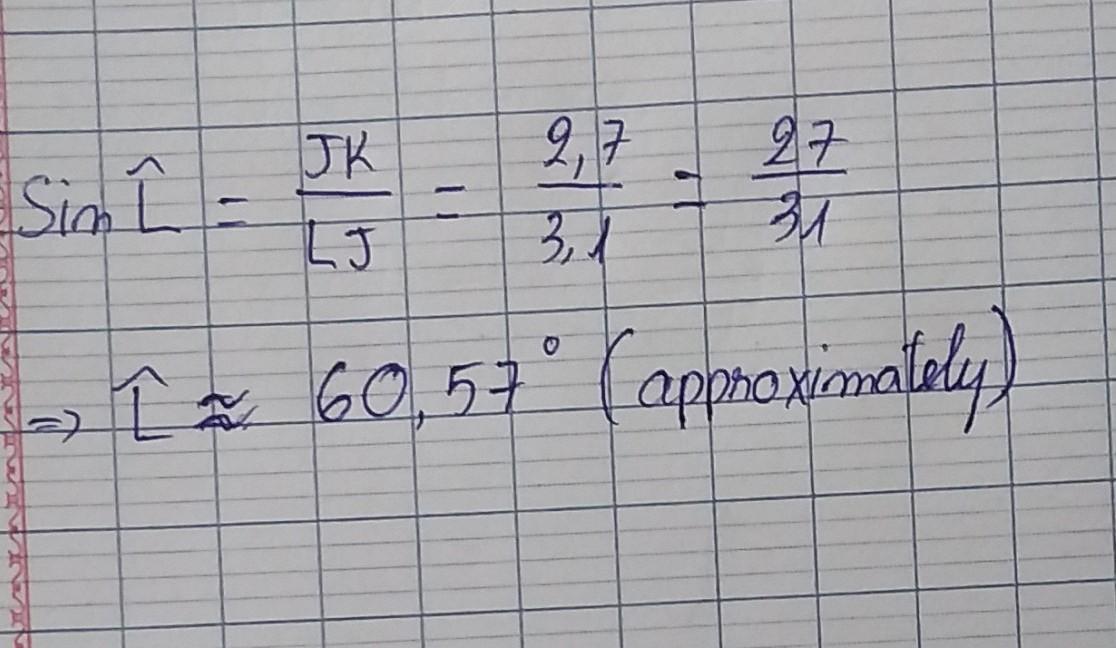 Sin L̂ = JK/LJ = 2,7/3,1 = 27/31
=> L̂ ≈ 60,57° (approximately)